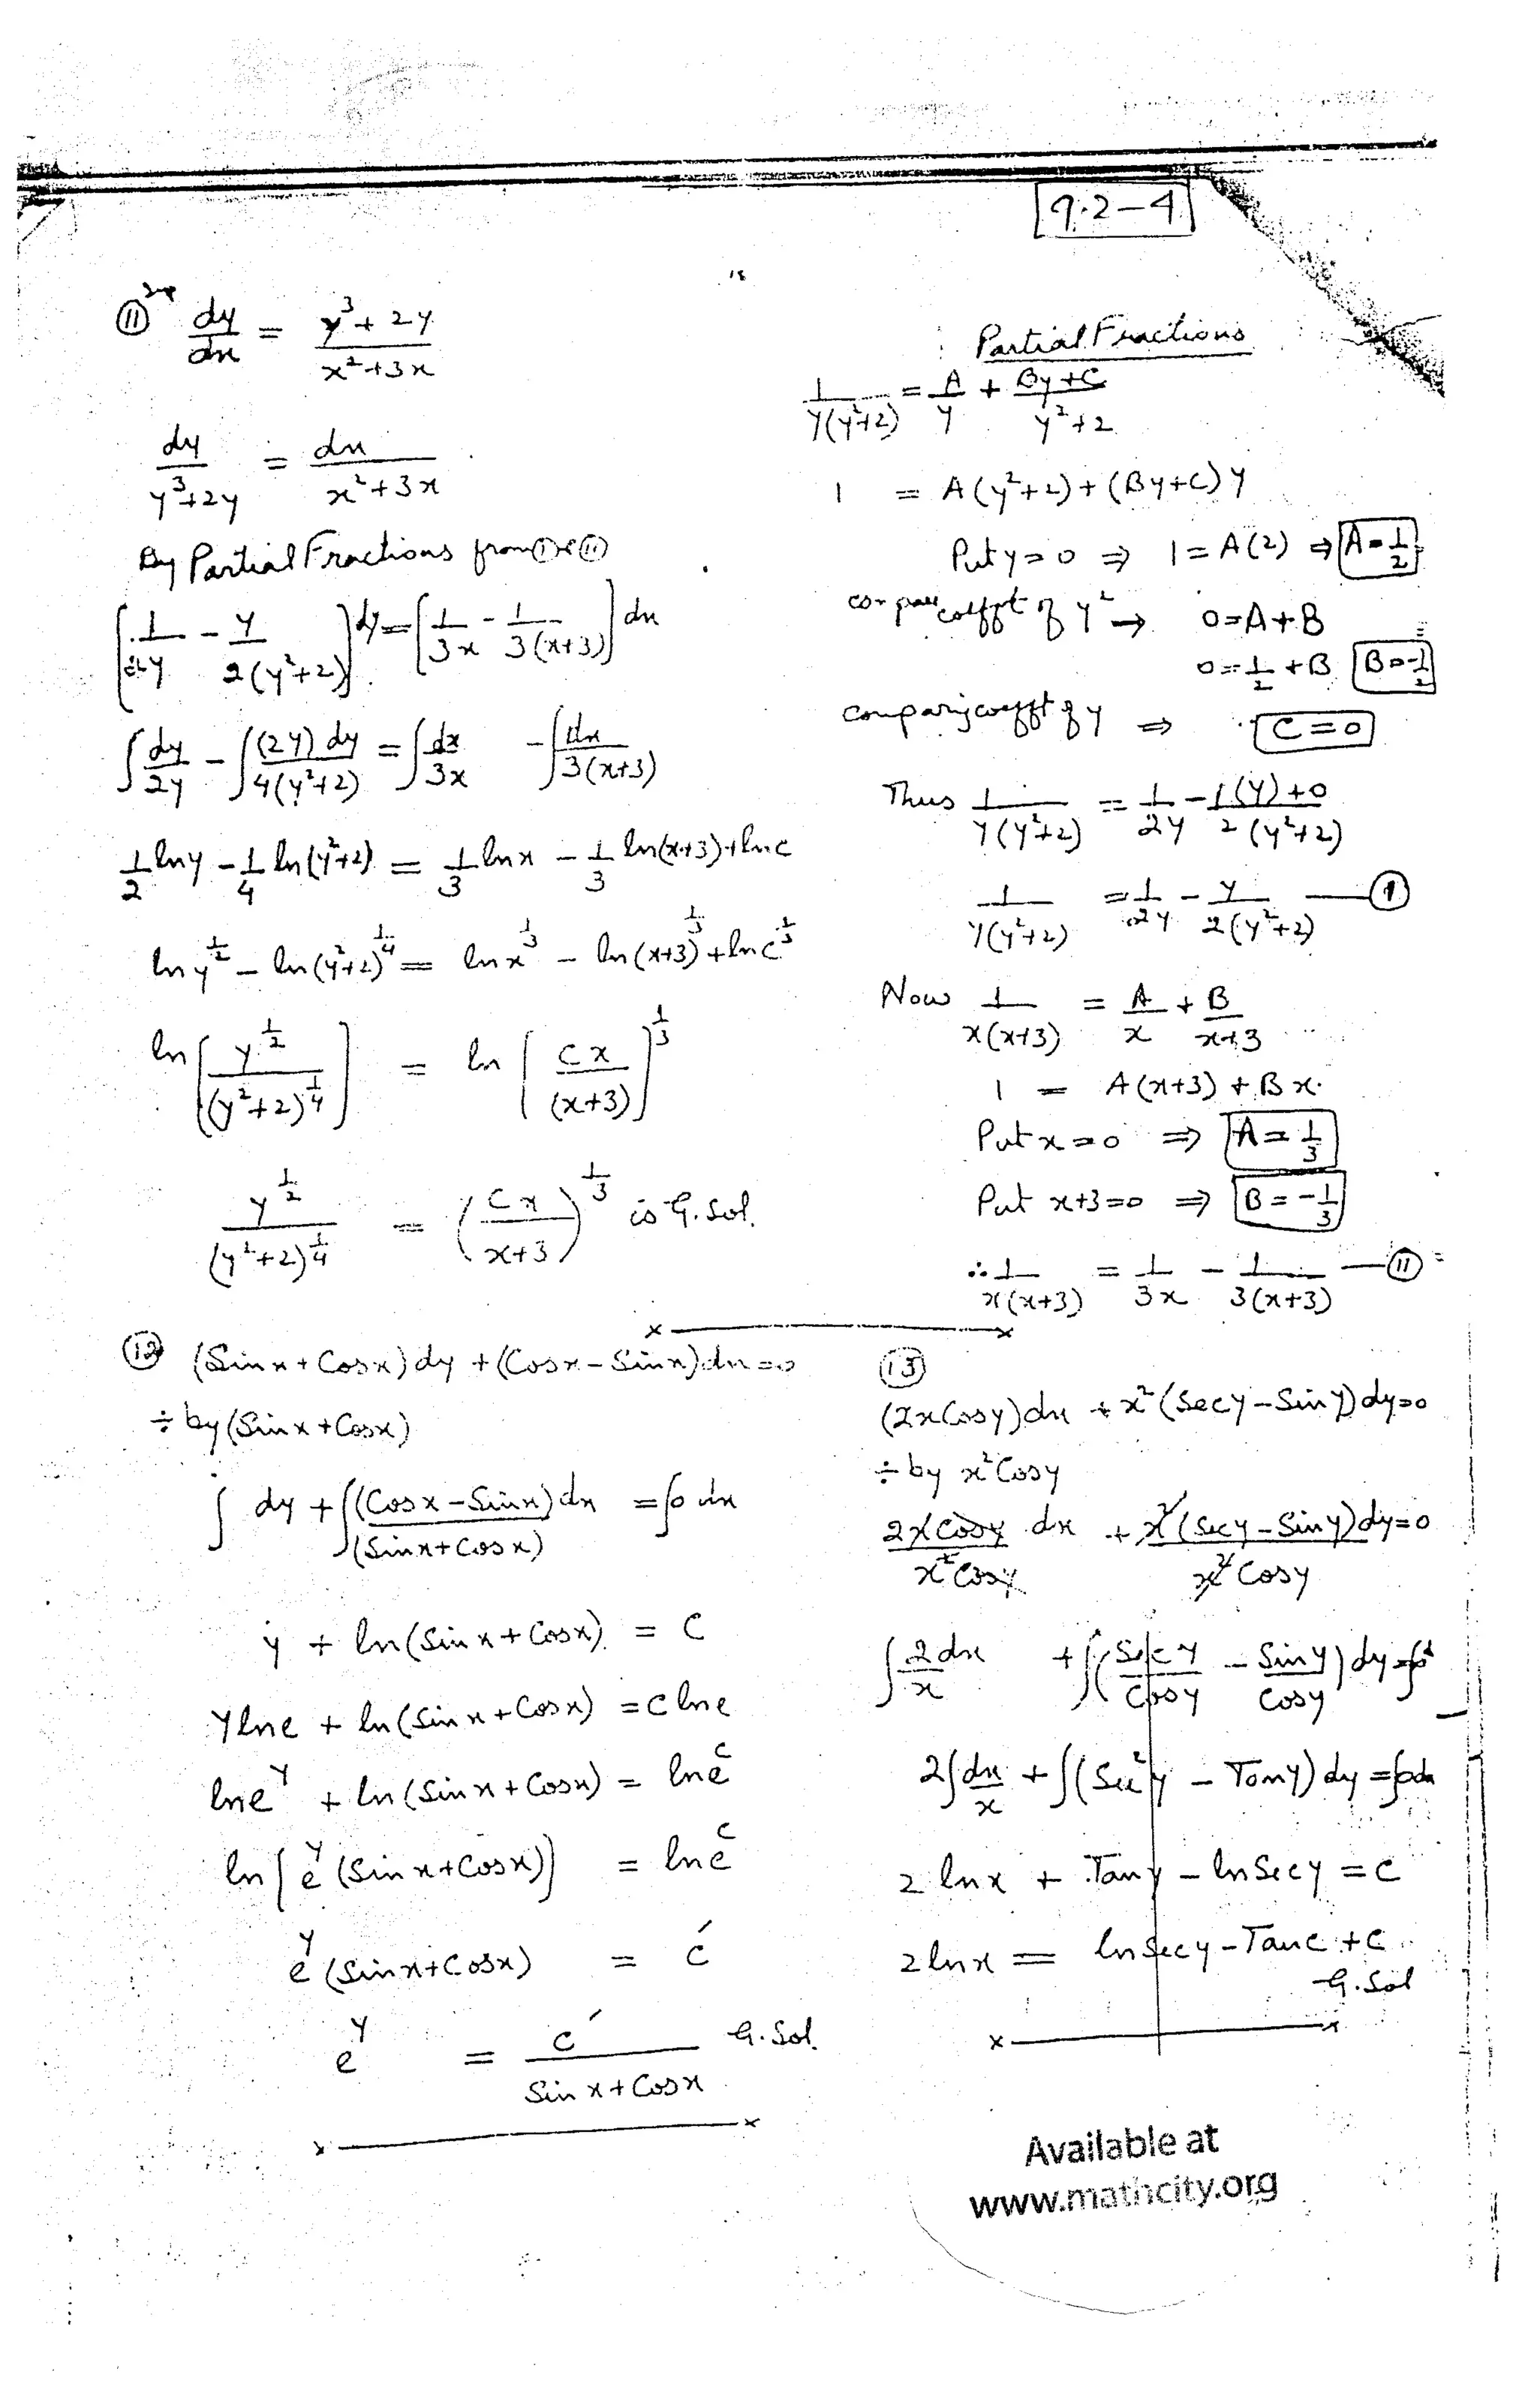 9.2-4
⑪ Imp dy/dx = (y³+2y)/(x²+3x)
dy/(y³+2y) = dx/(x²+3x)
By Partial Fractions from ① & ⑪
[1/2y - y/2(y²+2)] dy = [1/3x - 1/3(x+3)] dx
∫dy/2y - ∫(2y)dy/4(y²+2) = ∫dx/3x - ∫dx/3(x+3)
1/2 lny - 1/4 ln(y²+2) = 1/3 lnx - 1/3 ln(x+3) + lnc
ln y^(1/2) - ln(y²+2)^(1/4) = ln x^(1/3) - ln(x+3)^(1/3) + ln c^(1/3)
ln[y^(1/2)/(y²+2)^(1/4)] = ln[cx/(x+3)]^(1/3)
y^(1/2)/(y²+2)^(1/4) = (cx/(x+3))^(1/3) is G.Sol.
Partial Fractions
1/y(y²+2) = A/y + (By+C)/(y²+2)
1 = A(y²+2)+(By+C)y
Put y=0 ⇒ 1=A(2) ⇒ A=1/2
compare coefft of y² → 0=A+B
0=1/2+B B=-1/2
comparing coefft of y ⇒ C=0
Thus 1/y(y²+2) = 1/2y - (1(y)+0)/2(y²+2)
1/y(y²+2) = 1/2y - y/2(y²+2) —①
Now 1/x(x+3) = A/x + B/(x+3)
1 = A(x+3) + Bx.
Put x=0 ⇒ A=1/3
Put x+3=0 ⇒ B=-1/3
∴ 1/x(x+3) = 1/3x - 1/3(x+3) —⑪
⑫ (Sinx+Cosx)dy + (Cosx-Sinx)dx=0
÷ by (Sinx+Cosx)
∫dy + ∫(Cosx-Sinx)dx/(Sinx+Cosx) = ∫0 dx
y + ln(Sinx+Cosx) = C
y lne + ln(Sinx+Cosx) = c lne
lne^y + ln(Sinx+Cosx) = lne^c
ln[e^y(Sinx+Cosx)] = lne^c
e^y(Sinx+Cosx) = c′
e^y = c′/(Sinx+Cosx) G.Sol.
⑬
(2xCosy)dx + x²(Secy-Siny)dy=0
÷ by x²Cosy
2xCosy/x²Cosy dx + x²(Secy-Siny)dy/x²Cosy=0
∫2dx/x + ∫(Secy/Cosy - Siny/Cosy)dy=∫0
2∫dx/x + ∫(Sec²y - Tany)dy=∫0dx
2 lnx + Tany - lnSecy = c
2lnx = lnSecy-Tanc+c
G.Sol
Available at
www.mathcity.org